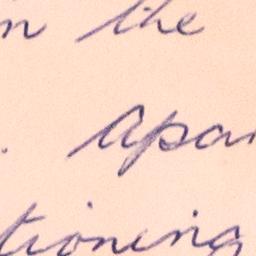 n the
. Apar
tioning